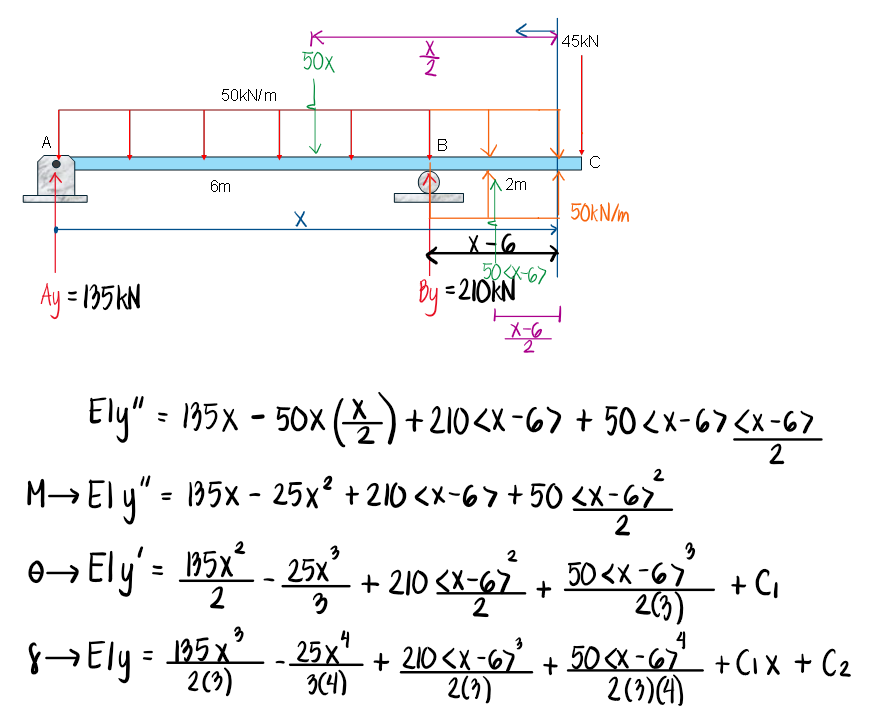 45kN
x/2
50x
50kN/m
A
B
C
6m
2m
50kN/m
x
x-6
50<x-6>
Ay = 135kN
By = 210kN
x-6/2
EIy" = 135x - 50x(x/2) + 210<x-6> + 50<x-6> <x-6>/2
M→EIy" = 135x - 25x² + 210<x-6> + 50 <x-6>²/2
θ→EIy' = 135x²/2 - 25x³/3 + 210<x-6>²/2 + 50<x-6>³/2(3) + C₁
δ→EIy = 135x³/2(3) - 25x⁴/3(4) + 210<x-6>³/2(3) + 50<x-6>⁴/2(3)(4) + C₁x + C₂